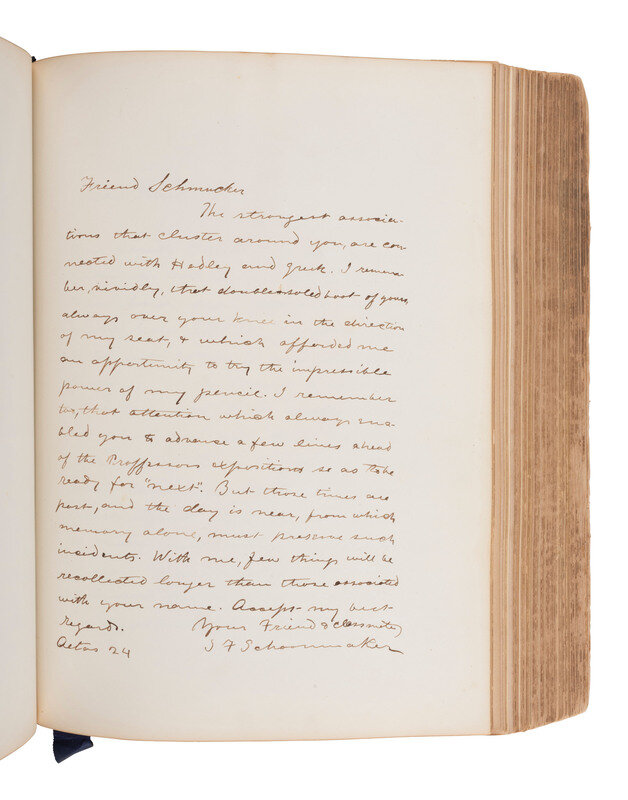 Friend Schmucker
The strongest associa-
tions that cluster around you, are con
nected with Hadley and greek. I remem
ber, vividly, that double soled boot of yours,
always over your knee in the direction
of my seat, & which afforded me
an opportunity to try the impressible
power of my pencil. I remember
too, that attention which always ena-
bled you to advance a few lines ahead
of the Proffessors expositions so as to be
ready for "next". But those times are
past, and the day is near, from which
memory alone, must preserve such
incidents. With me, few things will be
recollected longer than those associated
with your name. Accept my best
regards. Your Friend & classmate
Aetas 24 S F Schoonmaker